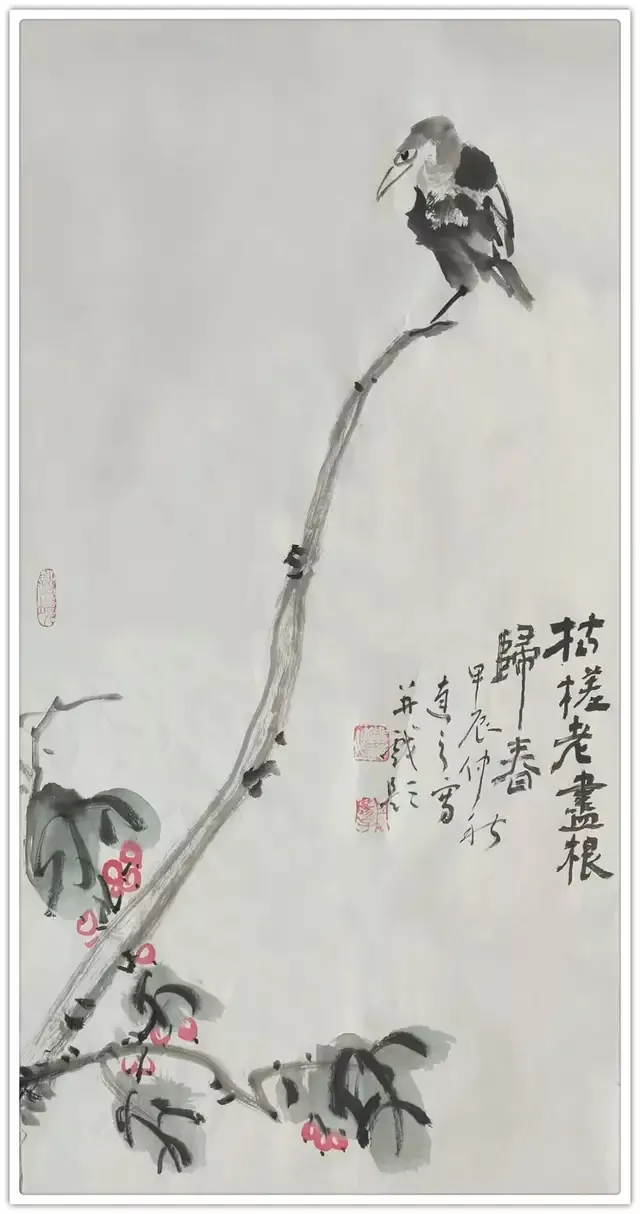 枯槎老盡根
歸春
甲辰仲秋
直之寫
并戲題